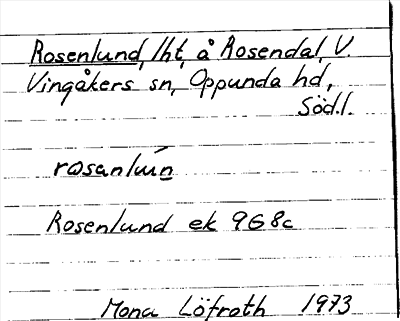 Rosenlund, lht, å Rosendal, V.
Vingåkers sn, Oppunda hd,
Söd.l.
rosenlun
Rosenlund ek 9G8c
Mona Löfroth 1973